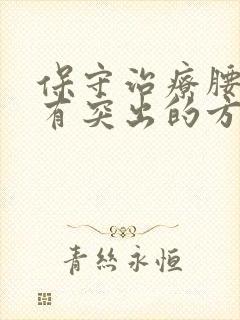 保守治療腰
有突出的方
青絲永恒